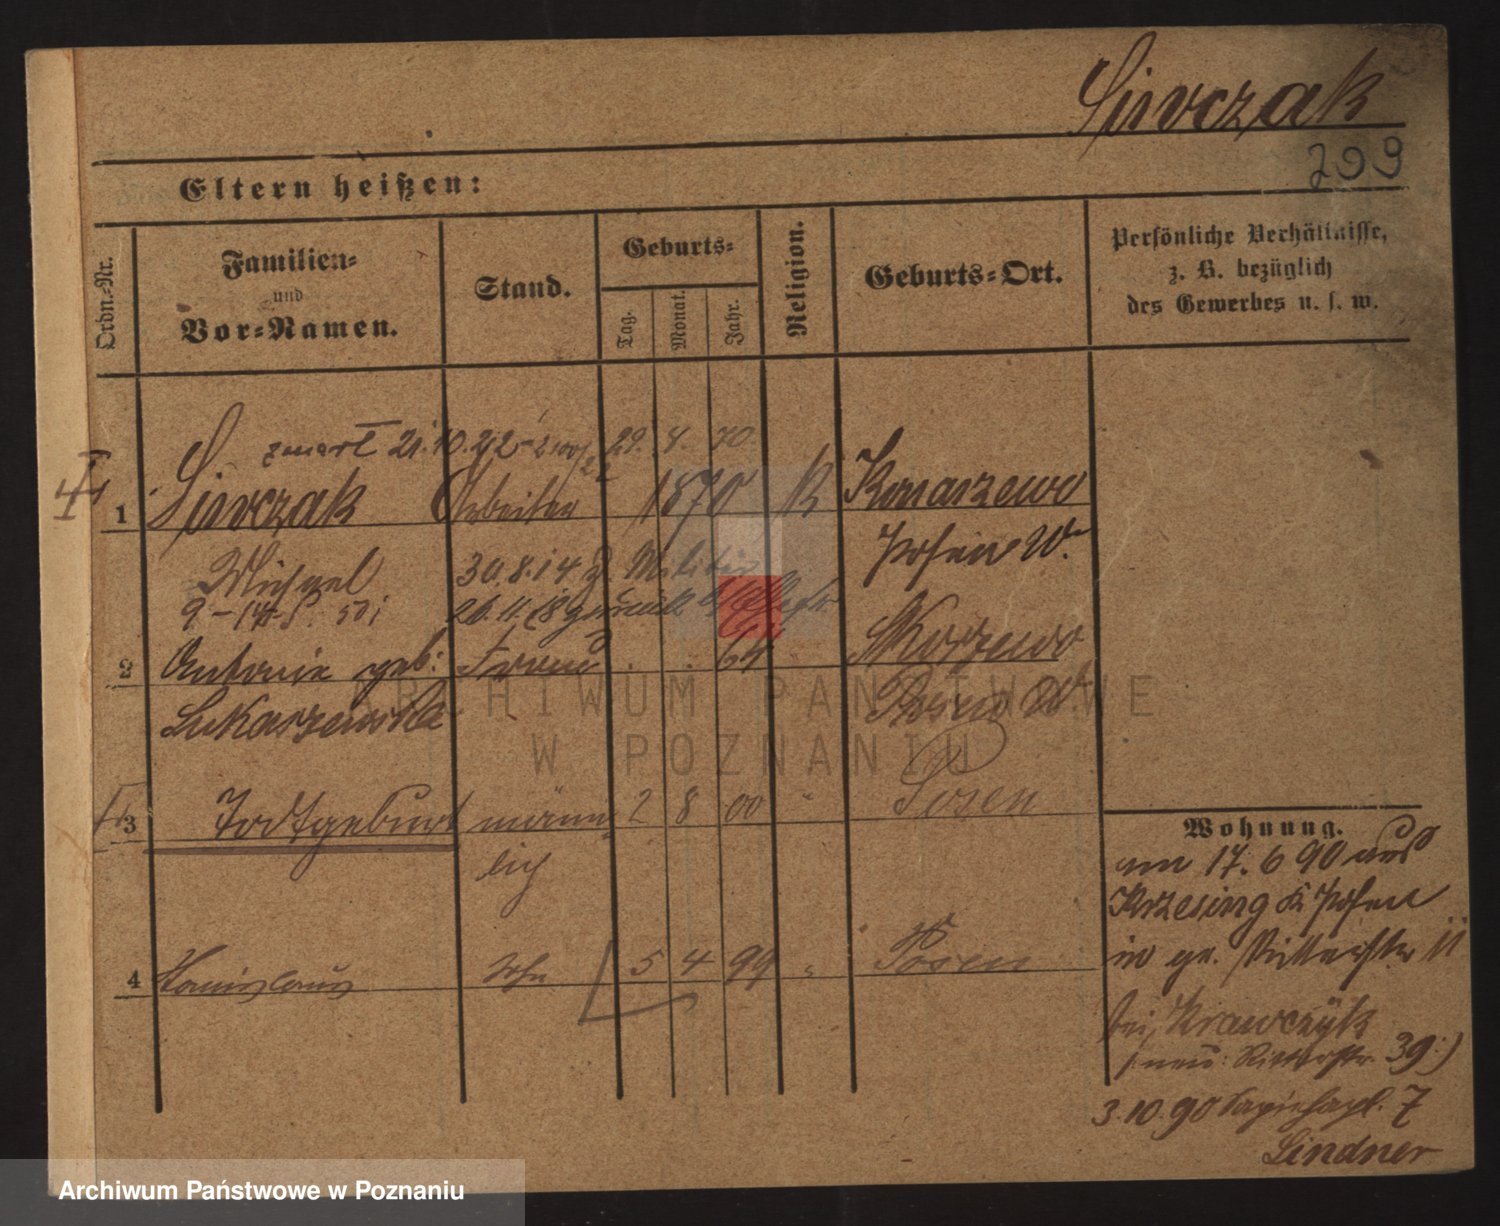 Siwczak
299
Eltern heißen:
Ordn.-Nr.
Familien-
und
Vor-Namen.
Stand.
Geburts-
Tag.
Monat.
Jahr.
Religion.
Geburts-Ort.
Persönliche Verhältnisse,
z. B. bezüglich
des Gewerbes u. s. w.
zmarł 21.10.22 29. 8. 70.
1 Siwczak Arbeiter 1870 K Konarzewo
Michael 30.8.14 z. Militär Posen W.
26.11.18 zurück
2 Antonie geb: Frau 64 " Skorzewo
Lukaszewska Posen W.
3 Todtgeburt männ- 2 8 00 " Posen
lich
4 Stanislaus Sohn 5 4 99 " Posen
Wohnung.
am 17. 6 90 aus
Krzesing K Posen
in gr. Ritterstr 11
bei Krawczyk
(: neu: Ritterstr. 39:)
3.10.90 Sapiehapl. 7
Lindner
ARCHIWUM PAŃSTWOWE
W POZNANIU
Archiwum Państwowe w Poznaniu